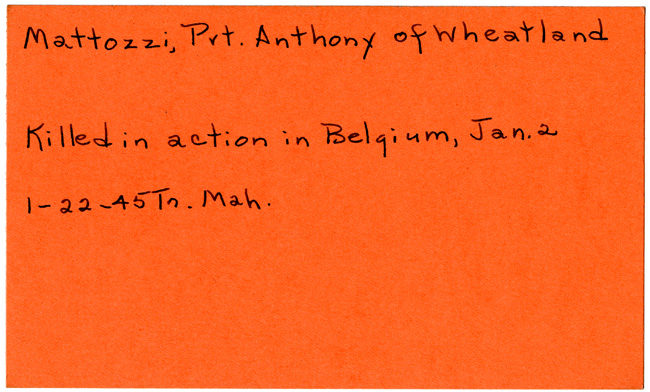 Mattozzi, Pvt. Anthony of Wheatland
Killed in action in Belgium, Jan. 2
1-22-45 Tn. Mah.